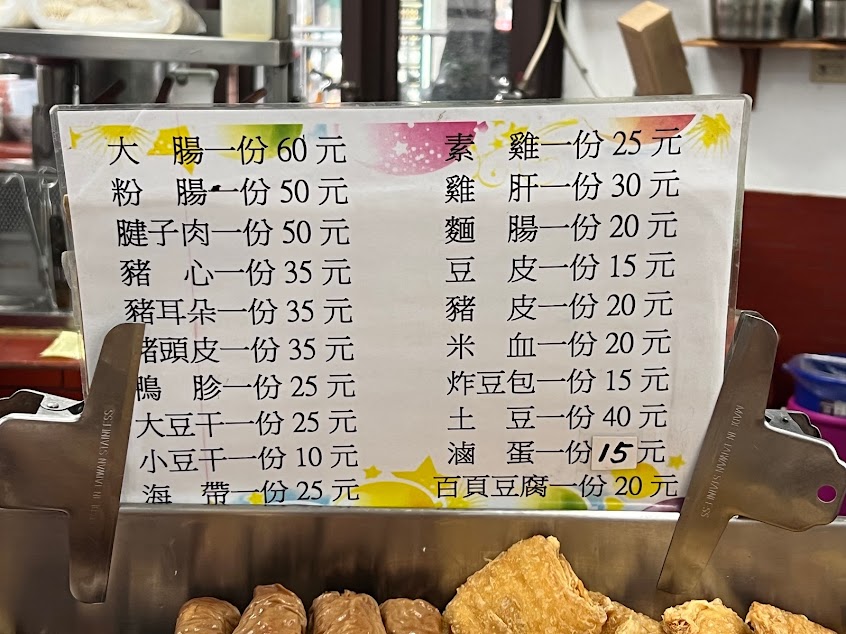 大腸一份60元
粉腸一份50元
腱子肉一份50元
豬心一份35元
豬耳朵一份35元
豬頭皮一份35元
鴨胗一份25元
大豆干一份25元
小豆干一份10元
海帶一份25元
素雞一份25元
雞肝一份30元
麵腸一份20元
豆皮一份15元
豬皮一份20元
米血一份20元
炸豆包一份15元
土豆一份40元
滷蛋一份15元
百頁豆腐一份20元
MADE IN TAIWAN STAINLESS